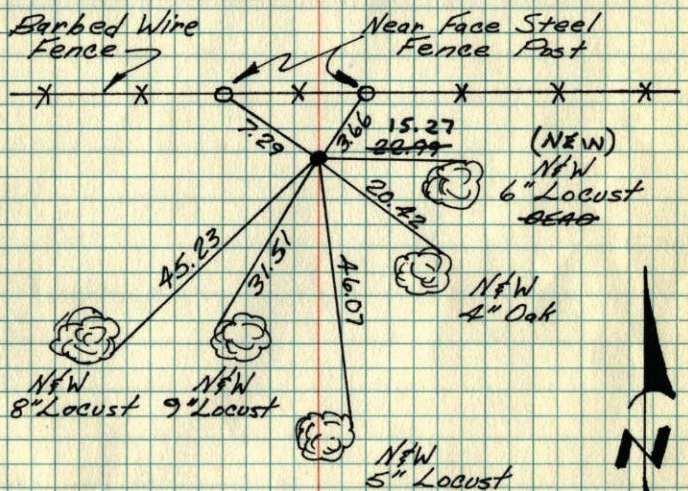 Barbed Wire
Fence
Near Face Steel
Fence Post
7.29
3.66
15.27
22.99
(N&W)
N&W
6" Locust
DEAD
20.42
N&W
4" Oak
45.23
31.51
46.07
N&W
8" Locust
N&W
9" Locust
N&W
5" Locust
N